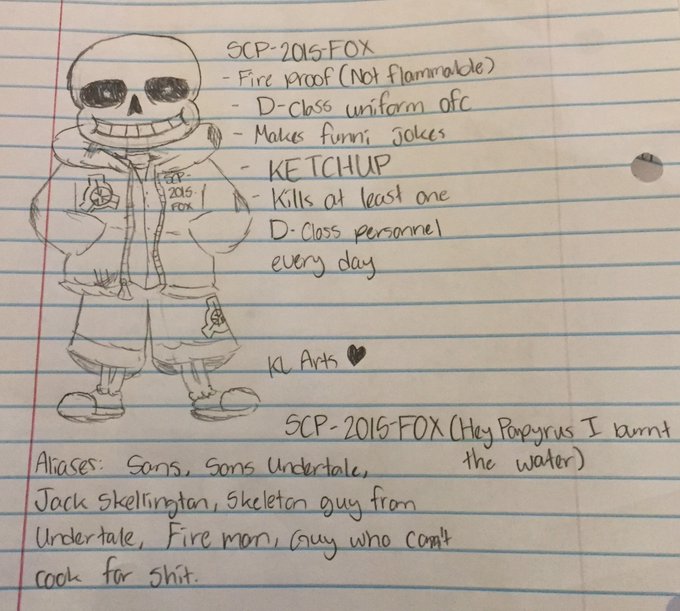 SCP-2015-FOX
- Fire proof (Not flammable)
- D-Class uniform ofc
- Makes funni jokes
- KETCHUP
- Kills at least one
D-Class personnel
every day
SCP-
2015-
FOX
KL Arts ♥
SCP-2015-FOX (Hey Papyrus I burnt
the water)
Aliases: Sans, Sans Undertale,
Jack Skellington, Skeleton guy from
Undertale, Fire man, Guy who can't
cook for shit.